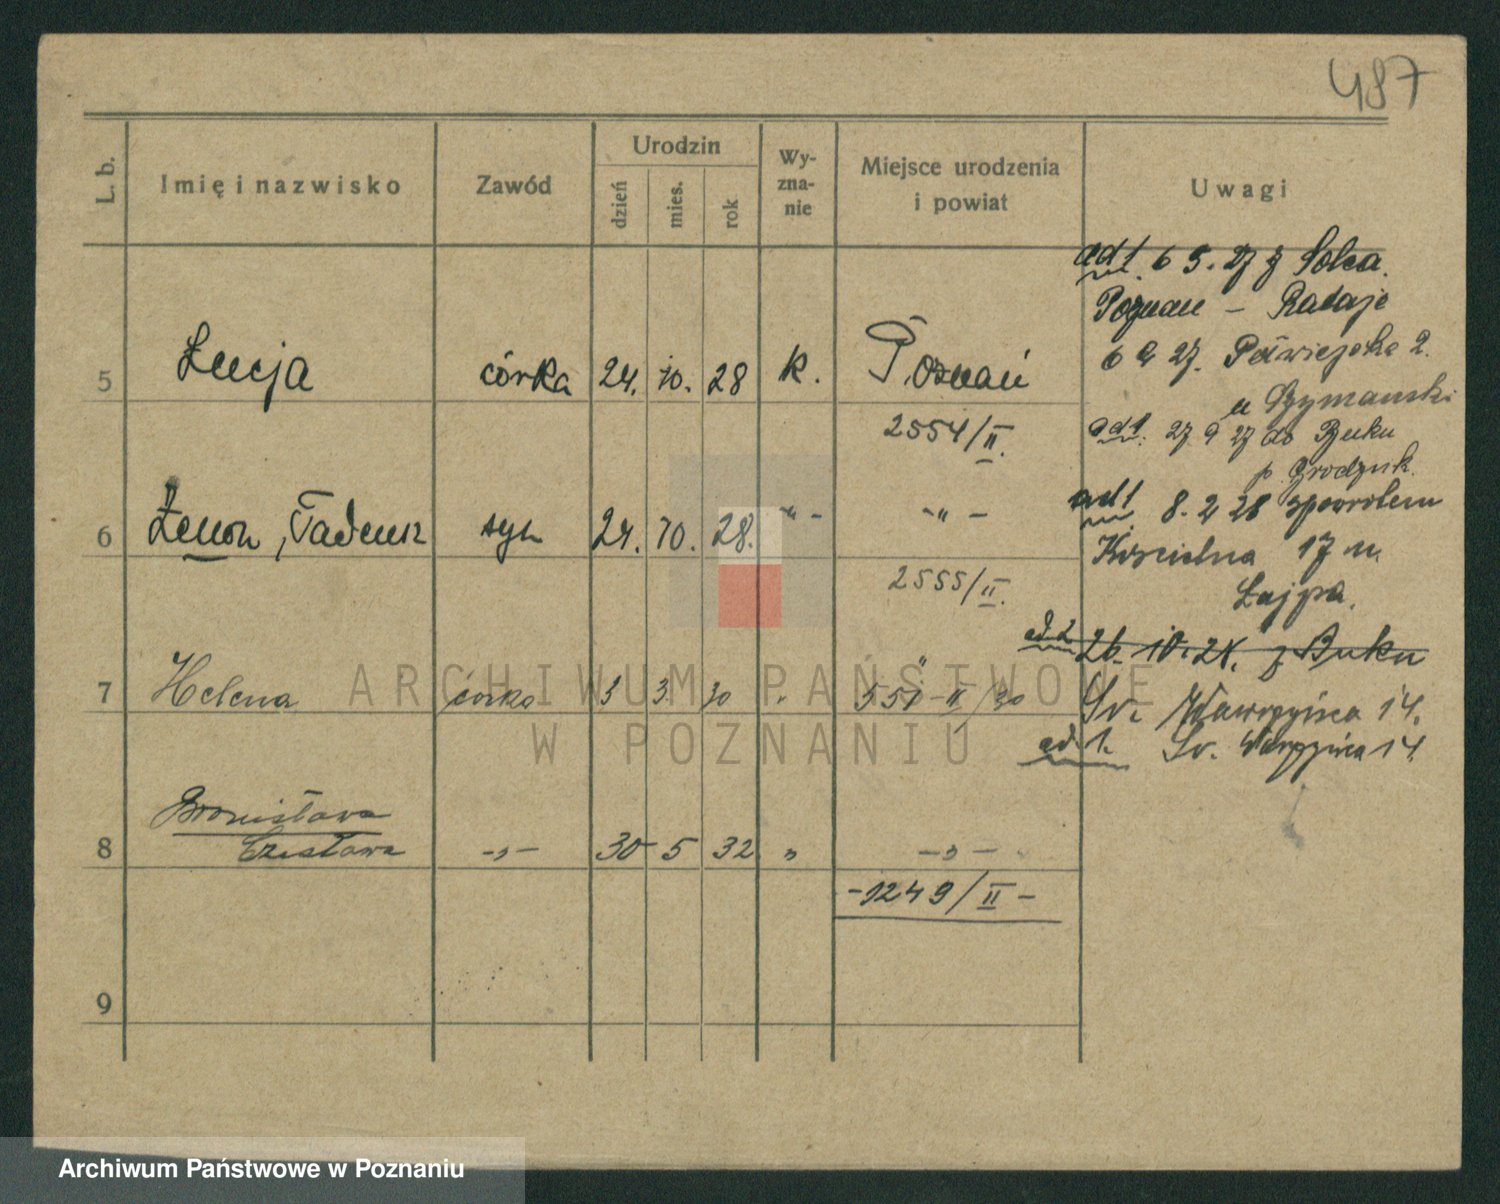 487
L. b.
Imię i nazwisko
Zawód
Urodzin
dzień
mies.
rok
Wy-
zna-
nie
Miejsce urodzenia
i powiat
Uwagi
5 Łucja córka 24. 10. 28 k. Poznań
2554/II.
6 Zenon, Tadeusz syn 24. 10. 28. -"- -"-
2555/II.
7 Helena córka 3 3 30 " "
551-II/30
Bronisława
8 Czesława -"- 30 5 32 " -"-
-1249/II-
9
ad 1. 6 5. 27 z Solca.
Poznań - Rataje
6 9 27. 2.
u Szymanski
ad 1. 27 9 27 do Buku
p.
ad 1 8. 2 28 spowrotem
Kościelna 17 u.
Łajpa.
ad. 2 26. 10. 28. z Buku
Św. Wawrzyńca 14.
ad. 1. Św. Wawrzyńca 14.
ARCHIWUM PAŃSTWOWE
W POZNANIU
Archiwum Państwowe w Poznaniu